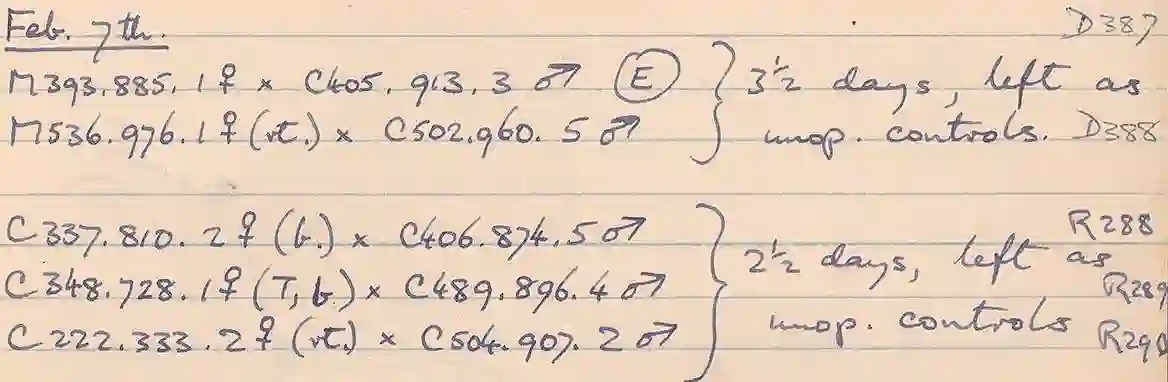 Feb. 7th. D387
M393.885.1♀ x C405.913.3 ♂ (E) } 3½ days, left as
M536.976.1♀ (vt.) x C502.960.5 ♂ unop. controls. D388
C337.810.2♀ (b.) x C406.874.5 ♂ R288
C348.728.1♀ (T, b.) x C489.896.4 ♂ } 2½ days, left as R289
C222.333.2♀ (vt.) x C504.907.2 ♂ unop. controls R290